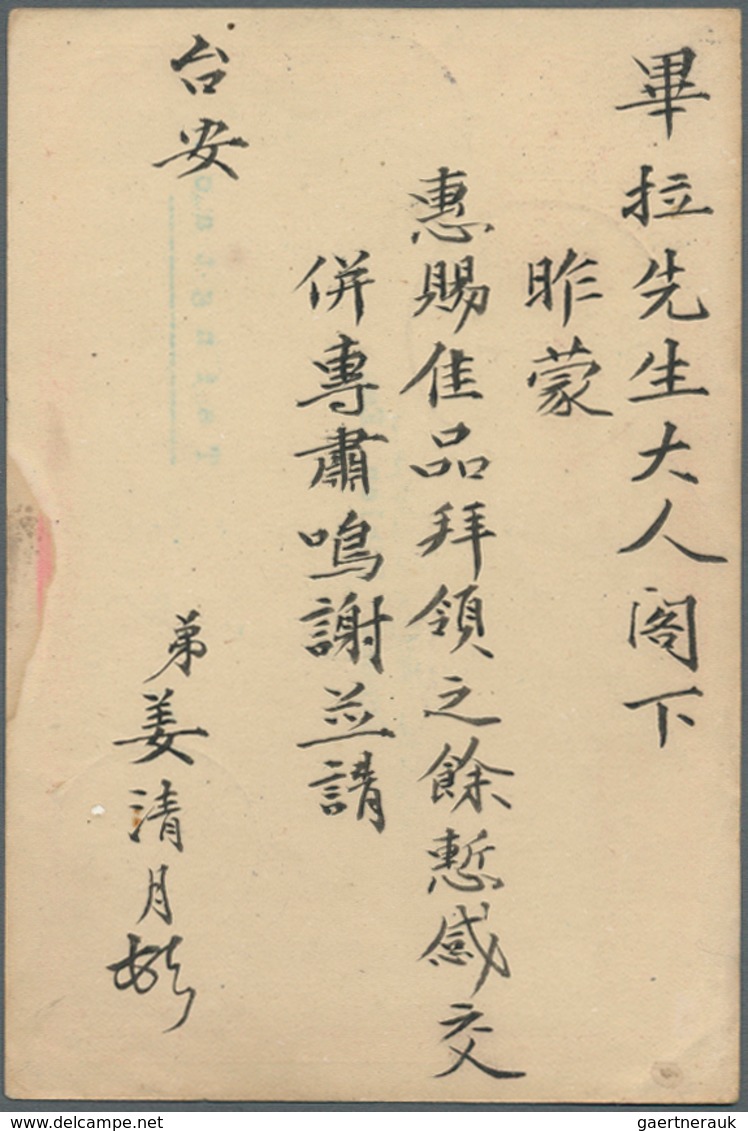 畢拉先生大人阁下
昨蒙
惠賜佳品拜領之餘慙感交
併專肅鳴謝並請
台安
弟姜清月
gaertnerauk